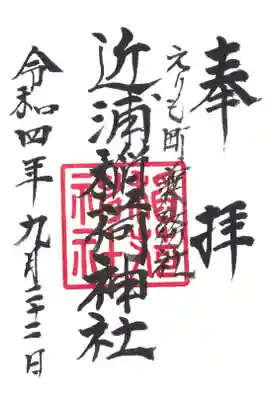 奉拝
えりも町
近浦稲荷神社
令和四年九月二十二日